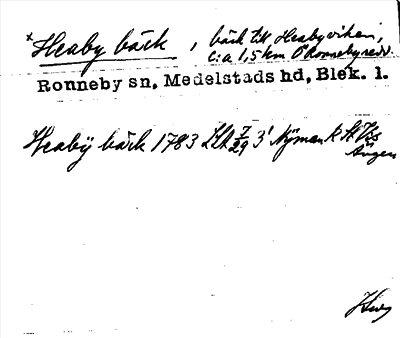 x Heaby bäck, bäck till Heabyviken,
c:a 1,5 km Ö Ronnebyredd.
Ronneby sn, Medelstads hd, Blek. l.
Heabÿ bäck 1783 LSA 7/29 3¹ Nyman k St
Ängen